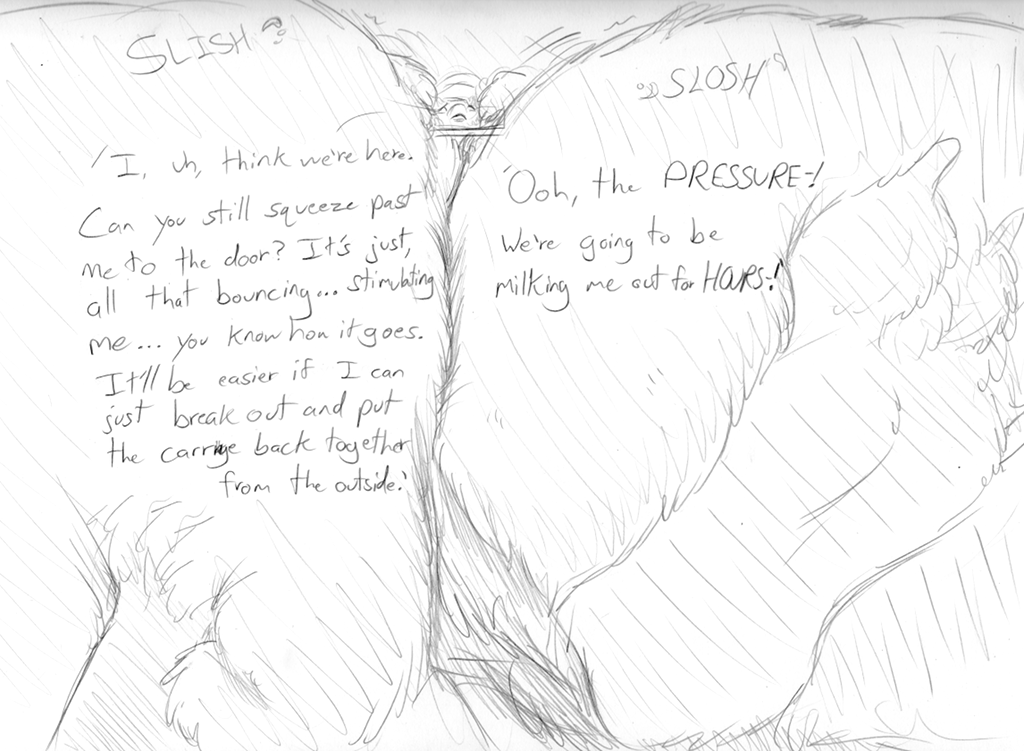 SLISH
'I, uh, think we're here.
Can you still squeeze past
me to the door? It's just,
all that bouncing... stimulating
me... you know how it goes.
It'll be easier if I can
just break out and put
the carriage back together
from the outside.'
SLOSH
'Ooh, the PRESSURE-!
We're going to be
milking me out for HOURS-!'